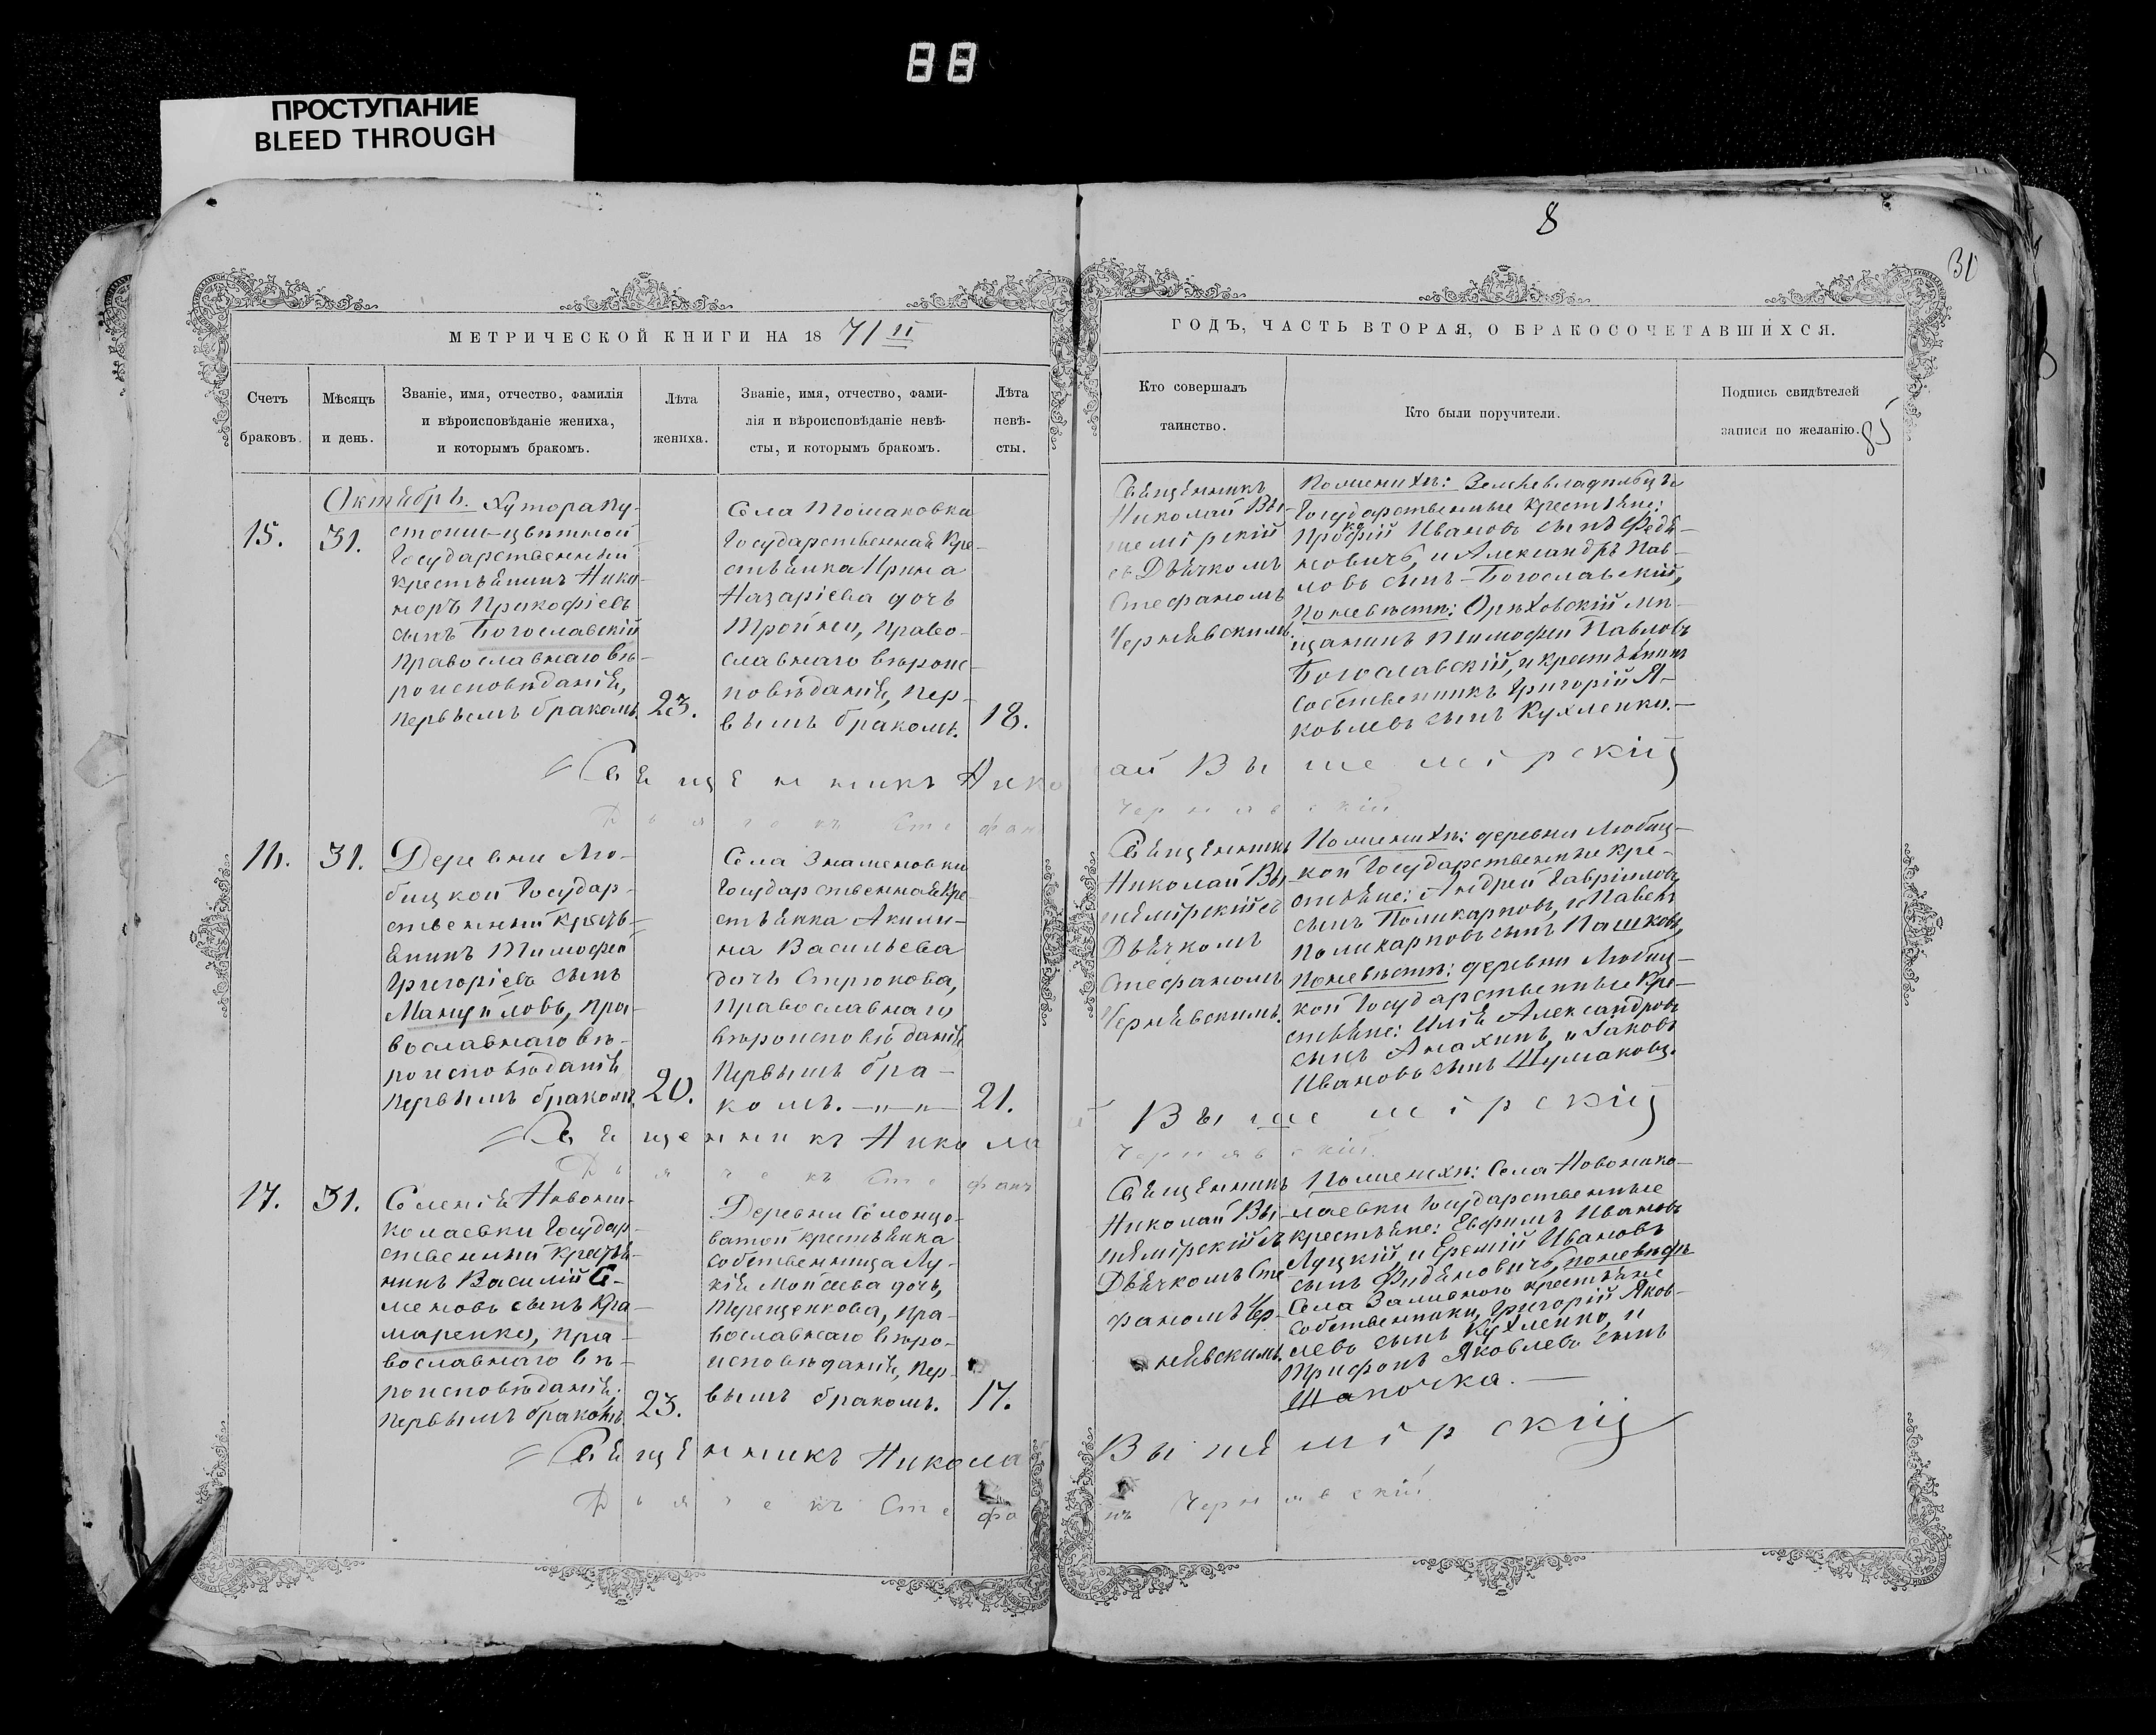 88
ПРОСТУПАНИЕ
BLEED THROUGH
8
МЕТРИЧЕСКОЙ КНИГИ НА 1871
ГОДЪ, ЧАСТЬ ВТОРАЯ, О БРАКОСОЧЕТАВШИХСЯ.
Счетъ
браковъ.
Мѣсяцъ
и день.
Званіе, имя, отчество, фамилія
и вѣроисповѣданіе жениха,
и которымъ бракомъ.
Лѣта
жениха.
Званіе, имя, отчество, фами-
лія и вѣроисповѣданіе невѣ-
сты, и которымъ бракомъ.
Лѣта
невѣ-
сты.
Кто совершалъ
таинство.
Кто были поручители.
Подпись свидѣтелей
записи по желанію.
85
15.
Октябрь.
31.
Хутора Пу-
Государственный
крестьянинъ Ника-
норъ Прокофіевъ
сынъ Богославскій
православнаго вѣ-
роисповѣданія,
первымъ бракомъ.
23.
Села Томаковки
Государственная кре-
стьянка Ирина
Назаріева дочь
Тройня, право-
славнаго вѣроис-
повѣданія, пер-
вымъ бракомъ.
18.
Священникъ
Николай Вы-
шемірскій
съ Дьячкомъ
Стефаномъ
Чернявскимъ.
По женихѣ:
Государственные крестьяне:
Прокофій Ивановъ сынъ Федя-
новичъ, и Александръ Пав-
ловъ сынъ Богославскій,
по невѣстѣ: Орѣховскій мѣ-
щанинъ Тимофей Павловъ
Богославскій, и крестьянинъ
собственникъ Григорій Я-
ковлевъ сынъ Кухленко.
Священникъ Николай Вышемірскій
Дьячекъ Стефанъ Чернявскій
16.
31.
Деревни Лю-
бицкой Государ-
ственный кресть-
янинъ Тимофей
Григоріевъ сынъ
Мануйловъ, пра-
вославнаго вѣ-
роисповѣданія
первымъ бракомъ.
20.
Села Знаменовки
Государственная кре-
стьянка Акили-
на Васильева
дочь Стрюкова,
православнаго
вѣроисповѣданія
первымъ бра-
комъ.
21.
Священникъ
Николай Вы-
шемірскій съ
Дьячкомъ
Стефаномъ
Чернявскимъ.
По женихѣ: деревни Любиц-
кой Государственные кре-
стьяне: Андрей Гавріиловъ
сынъ Поликарповъ, и Павелъ
Поликарповъ сынъ Пашковъ,
по невѣстѣ: деревни Любиц-
кой Государственные кре-
стьяне: Илія Александровъ
сынъ Анахинъ, и Іаковъ
Ивановъ сынъ Шумаковъ.
Священникъ Николай Вышемірскій
Дьячекъ Стефанъ Чернявскій
17.
31.
Селенія Новони-
колаевки Государ-
ственный крестья-
нинъ Василій Се-
меновъ сынъ Кра-
маренко, пра-
вославнаго вѣ-
роисповѣданія,
первымъ бракомъ.
23.
Деревни Солонцо-
ватой крестьянка
собственница Лу-
кія Мойсеева дочь,
Терещенкова, пра-
вославнаго вѣро-
исповѣданія, пер-
вымъ бракомъ.
17.
Священникъ
Николай Вы-
шемірскій съ
Дьячкомъ Сте
фаномъ Чер-
нявскимъ.
По женихѣ: Села Новонико-
лаевки Государственные
крестьяне: Евфимъ Ивановъ
Луцкій, и Еремій Ивановъ
сынъ Фидяновичъ, по невѣстѣ
Села Заливного крестьяне
собственники, Григорій Яков-
левъ сынъ Кухленко, и
Трифонъ Яковлевъ сынъ
Шапочка.
Священникъ Николай Вышемірскій
Дьячекъ Стефанъ Чернявскій